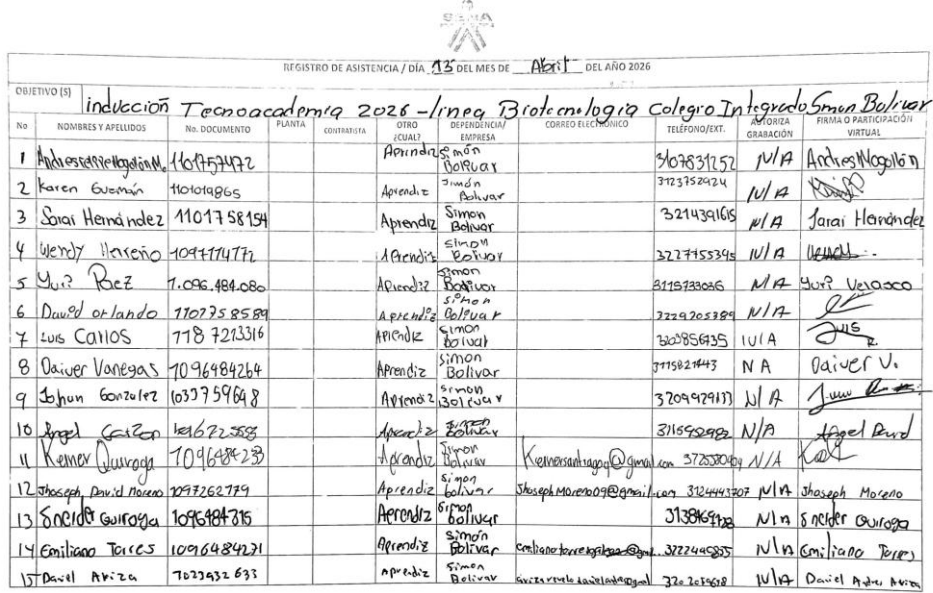 SENA
REGISTRO DE ASISTENCIA / DÍA 13 DEL MES DE Abril DEL AÑO 2026
OBJETIVO (S) inducción Tecnoacademia 2026 - linea Biotecnologia Colegio Integrado Simon Bolivar
No NOMBRES Y APELLIDOS No. DOCUMENTO PLANTA CONTRATISTA OTRO ¿CUAL? DEPENDENCIA/ EMPRESA CORREO ELECTRÓNICO TELÉFONO/EXT. AUTORIZA GRABACIÓN FIRMA O PARTICIPACIÓN VIRTUAL
1 Andres Mogollón M. 1101757472 Aprindiz Simón Bolivar 3107831252 N/A Andres Mogollón
2 Karen Guzmán 1101019865 Aprendiz Simón Bolivar 3123752924 N/A
3 Sarai Hernández 1101758154 Aprendiz Simon Bolivar 3214391615 N/A Sarai Hernández
4 Wendy Herreño 1097174772 Aprendiz Simon Bolivar 3227755395 N/A
5 Yuri Paez 1.096.484.080 Aprendiz Simon Bolivar 3115733036 N/A Yuri Velasco
6 David orlando 1107758589 Aprendiz Simon Bolivar 3229205389 N/A
7 Luis Carlos 118 7213316 Aprendiz Simon Bolivar N/A Luis
8 Daiver Vanegas 1096484264 Aprendiz Simon Bolivar 3115821443 NA Daiver V.
9 Johan Gonzalez 1033759648 Aprendiz Simon Bolivar 3209929133 N/A
10 Angel Garzon Aprendiz Simon Bolivar 3116952982 N/A Angel David
11 Keiner Quiroga 1096484233 Aprendiz Simon Bolivar N/A
12 Jhoseph David Moreno 1097262779 Aprendiz Simon bolivar JhosephMoreno09@gmail.com 3124443707 N/A Jhoseph Moreno
13 Sneider Quiroga 1096484315 Aprendiz Simon Bolivar N/A Sneider Quiroga
14 Emiliano Torres 1096484271 Aprendiz Simón Bolivar N/A Emiliano Torres
15 Daniel Ariza 1023932633 Aprendiz Simon Bolivar N/A Daniel Ariza